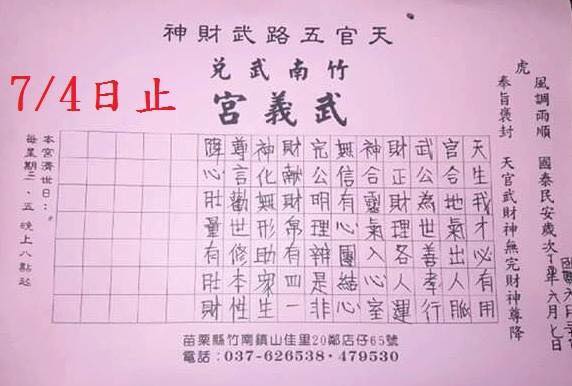 天官五路武財神
竹南武兌
武義宮
7/4日止
虎
風調雨順 國泰民安歲次
年六月七日
奉旨褒封 天官武財神無完財神尊降
天生我才必有用
官合地氣出人脈
武公為世善孝行
財正財理各人運
神合靈氣入心室
無信有心團結心
完公明理辨是非
財献財帛有四一
神化無形助眾生
尊言勸世修本性
降心肚量有肚財
本宮濟世日：
每星期二、五 晚上八點起
苗栗縣竹南鎮山佳里20鄰店仔65號
電話：037-626538·479530